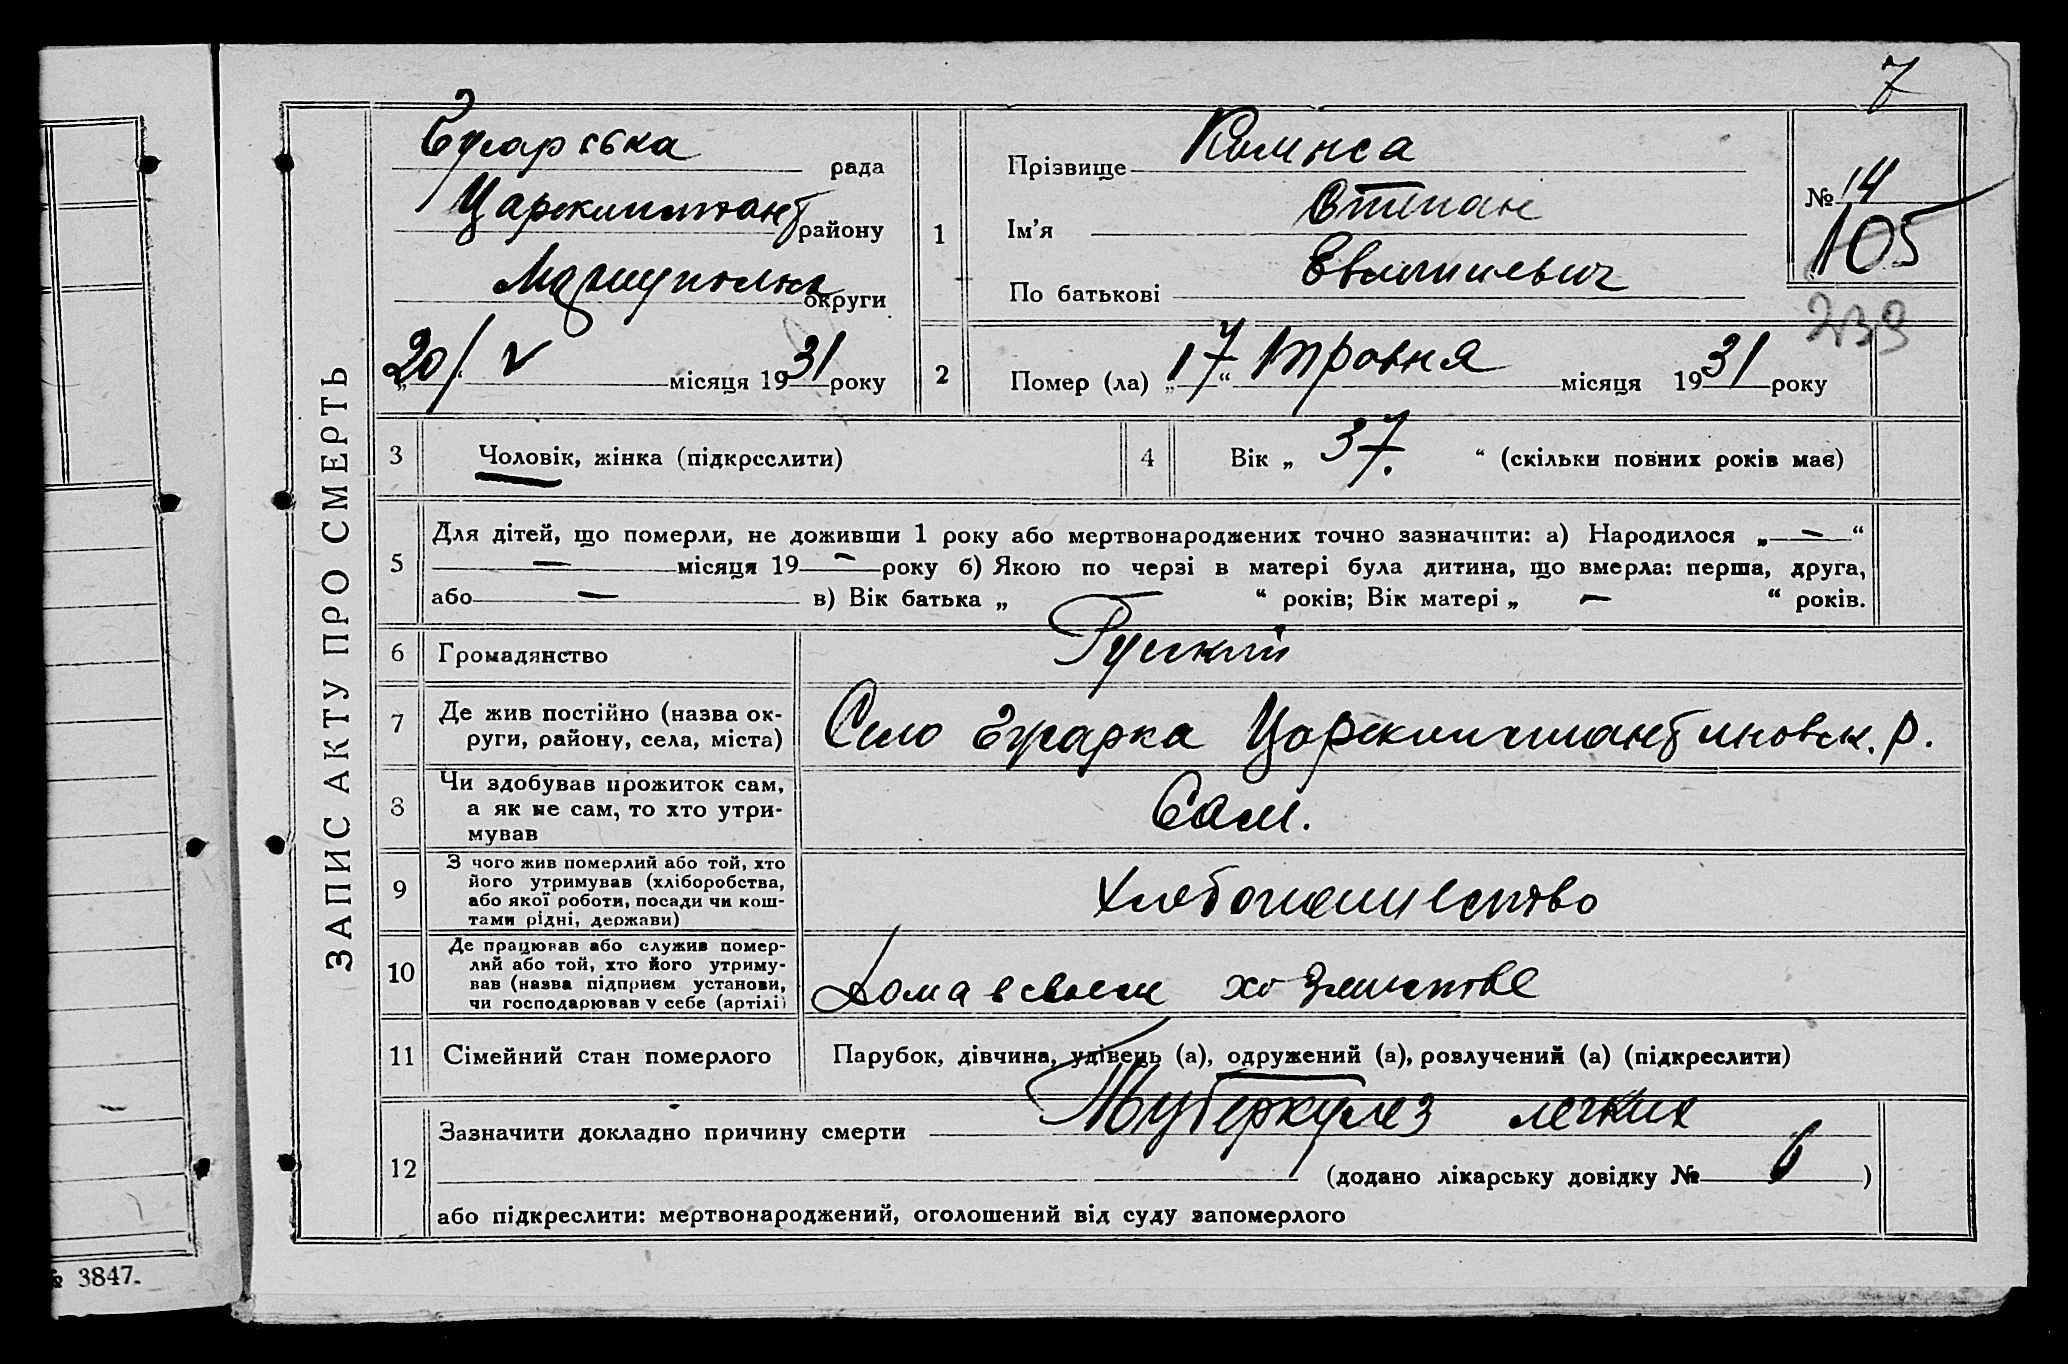 7
ЗАПИС АКТУ ПРО СМЕРТЬ
рада
Царекьигтанб району
Мариупольск округи
„20/“ V місяця 1931 року
1
Прізвище
Ім'я Степан
По батькові
№ 14
105
233
2
Помер (ла) „17“ Травня місяця 1931 року
3
Чоловік, жінка (підкреслити)
4
Вік „ 37. “ (скільки повних років має)
5
Для дітей, що померли, не доживши 1 року або мертвонароджених точно зазначити: а) Народилося „ — “
— місяця 19 — року б) Якою по черзі в матері була дитина, що вмерла: перша, друга,
або — в) Вік батька „ — “ років; Вік матері „ — “ років.
6
Громадянство
Руский
7
Де жив постійно (назва ок-
руги, району, села, міста)
Село
8
Чи здобував прожиток сам,
а як не сам, то хто утри-
мував
Сам.
9
З чого жив померлий або той, хто
його утримував (хліборобства,
або якої роботи, посади чи кош-
тами рідні, держави)
Хлебопашество
10
Де працював або служив помер-
лий або той, хто його утриму-
вав (назва підприєм установи,
чи господарював у себе (артілі)
Дома в своем хозяистве
11
Сімейний стан померлого
Парубок, дівчина, удівець (а), одружений (а), розлучений (а) (підкреслити)
12
Зазначити докладно причину смерти Туберкулез легких
(додано лікарську довідку № 6 )
або підкреслити: мертвонароджений, оголошений від суду запомерлого
№ 3847.